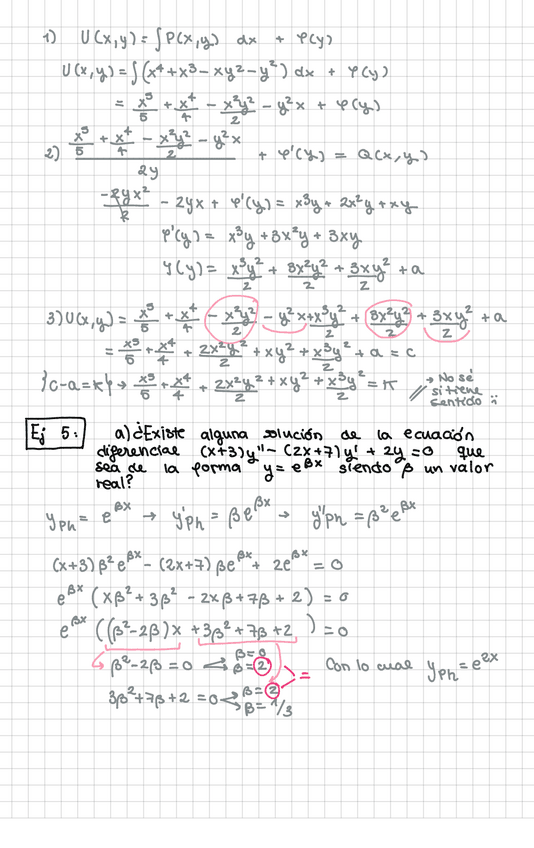 1) U(x,y) = ∫P(x,y) dx + φ(y)
U(x,y) = ∫(x⁴+x³-xy²-y²) dx + φ(y)
= x⁵/5 + x⁴/4 - x²y²/2 - y²x + φ(y)
2) (x⁵/5 + x⁴/4 - x²y²/2 - y²x)/2y + φ'(y) = Q(x,y)
-2yx²/2 - 2yx + φ'(y) = x³y + 2x²y + xy
φ'(y) = x³y + 3x²y + 3xy
φ(y) = x³y²/2 + 3x²y²/2 + 3xy²/2 + a
3) U(x,y) = x⁵/5 + x⁴/4 - x²y²/2 - y²x + x³y²/2 + 3x²y²/2 + 3xy²/2 + a
= x⁵/5 + x⁴/4 + 2x²y²/2 + xy² + x³y²/2 + a = c
{c-a=K} → x⁵/5 + x⁴/4 + 2x²y²/2 + xy² + x³y²/2 = K
→ No sé
si tiene
sentido
Ej 5: a) ¿Existe alguna solución de la ecuación
diferencial (x+3)y'' - (2x+7)y' + 2y = 0 que
sea de la forma y = e^βx siendo β un valor
real?
y_Ph = e^βx → y'_Ph = βe^βx → y''_Ph = β²e^βx
(x+3)β²e^βx - (2x+7)βe^βx + 2e^βx = 0
e^βx (xβ² + 3β² - 2xβ + 7β + 2) = 0
e^βx ((β²-2β)x + 3β² + 7β + 2) = 0
β²-2β = 0 β=0 β=2
= Con lo cual y_Ph = e^2x
3β²+7β+2 = 0 β=2 β=1/3